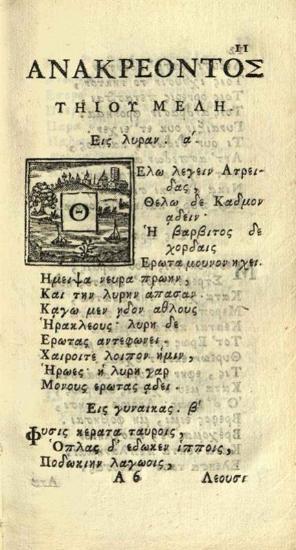 11
ΑΝΑΚΡΕΟΝΤΟΣ
ΤΗΙΟΥ ΜΕΛΗ.
Εις λυραν. α'
Θελω λεγειν Ατρει-
δας,
Θελω δε Καδμον
αδειν·
Η βαρβιτος δε
χορδαις
Ερωτα μουνον ηχει.
Ημειψα νευρα πρωην,
Και την λυρην απασαν·
Καγω μεν ηδον αθλους
Ηρακλεους· λυρη δε
Ερωτας αντεφωνει.
Χαιροιτε λοιπον ημιν,
Ηρωες· η λυρη γαρ
Μονους ερωτας αδει.
Εις γυναικας. β'
Φυσις κερατα ταυροις,
Οπλας δ' εδωκεν ιπποις,
Ποδωκιην λαγωοις,
Α 6 Λεουσι